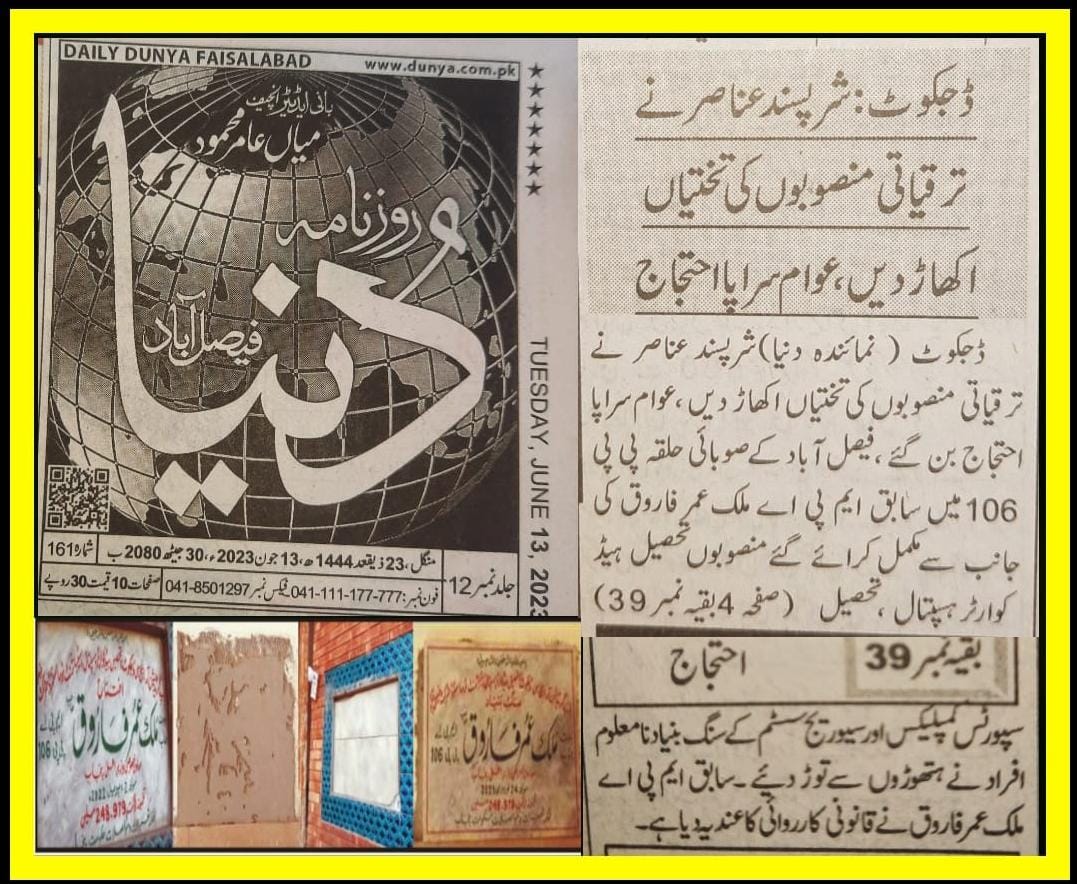 DAILY DUNYA FAISALABAD
www.dunya.com.pk
بانی ایڈیٹر انچیف
میاں عامر محمود
روزنامہ
دُنیا
فیصل آباد
TUESDAY, JUNE 13, 2023
منگل، 23 ذیقعد 1444ھ، 13 جون 2023ء، 30 جیٹھ 2080 ب
شمارہ 161
جلد نمبر 12
فون نمبر: 777-177-111-041 فیکس نمبر 8501297-041
صفحات 10 قیمت 30 روپے
ڈجکوٹ: شرپسند عناصر نے
ترقیاتی منصوبوں کی تختیاں
اکھاڑ دیں، عوام سراپا احتجاج
ڈجکوٹ (نمائندہ دنیا) شرپسند عناصر نے
ترقیاتی منصوبوں کی تختیاں اکھاڑ دیں، عوام سراپا
احتجاج بن گئے، فیصل آباد کے صوبائی حلقہ پی پی
106 میں سابق ایم پی اے ملک عمر فاروق کی
جانب سے مکمل کرائے گئے منصوبوں تحصیل ہیڈ
کوارٹر ہسپتال، تحصیل (صفحہ 4 بقیہ نمبر 39)
بقیہ نمبر 39
احتجاج
سپورٹس کمپلیکس اور سیوریج سسٹم کے سنگ بنیاد نامعلوم
افراد نے ہتھوڑوں سے توڑ دیئے۔ سابق ایم پی اے
ملک عمر فاروق نے قانونی کارروائی کا عندیہ دیا ہے۔
افتتاح
ملک عمر فاروق
106
248.979
سنگ بنیاد
ملک عمر فاروق
ایم پی اے
پی پی 106
248.979